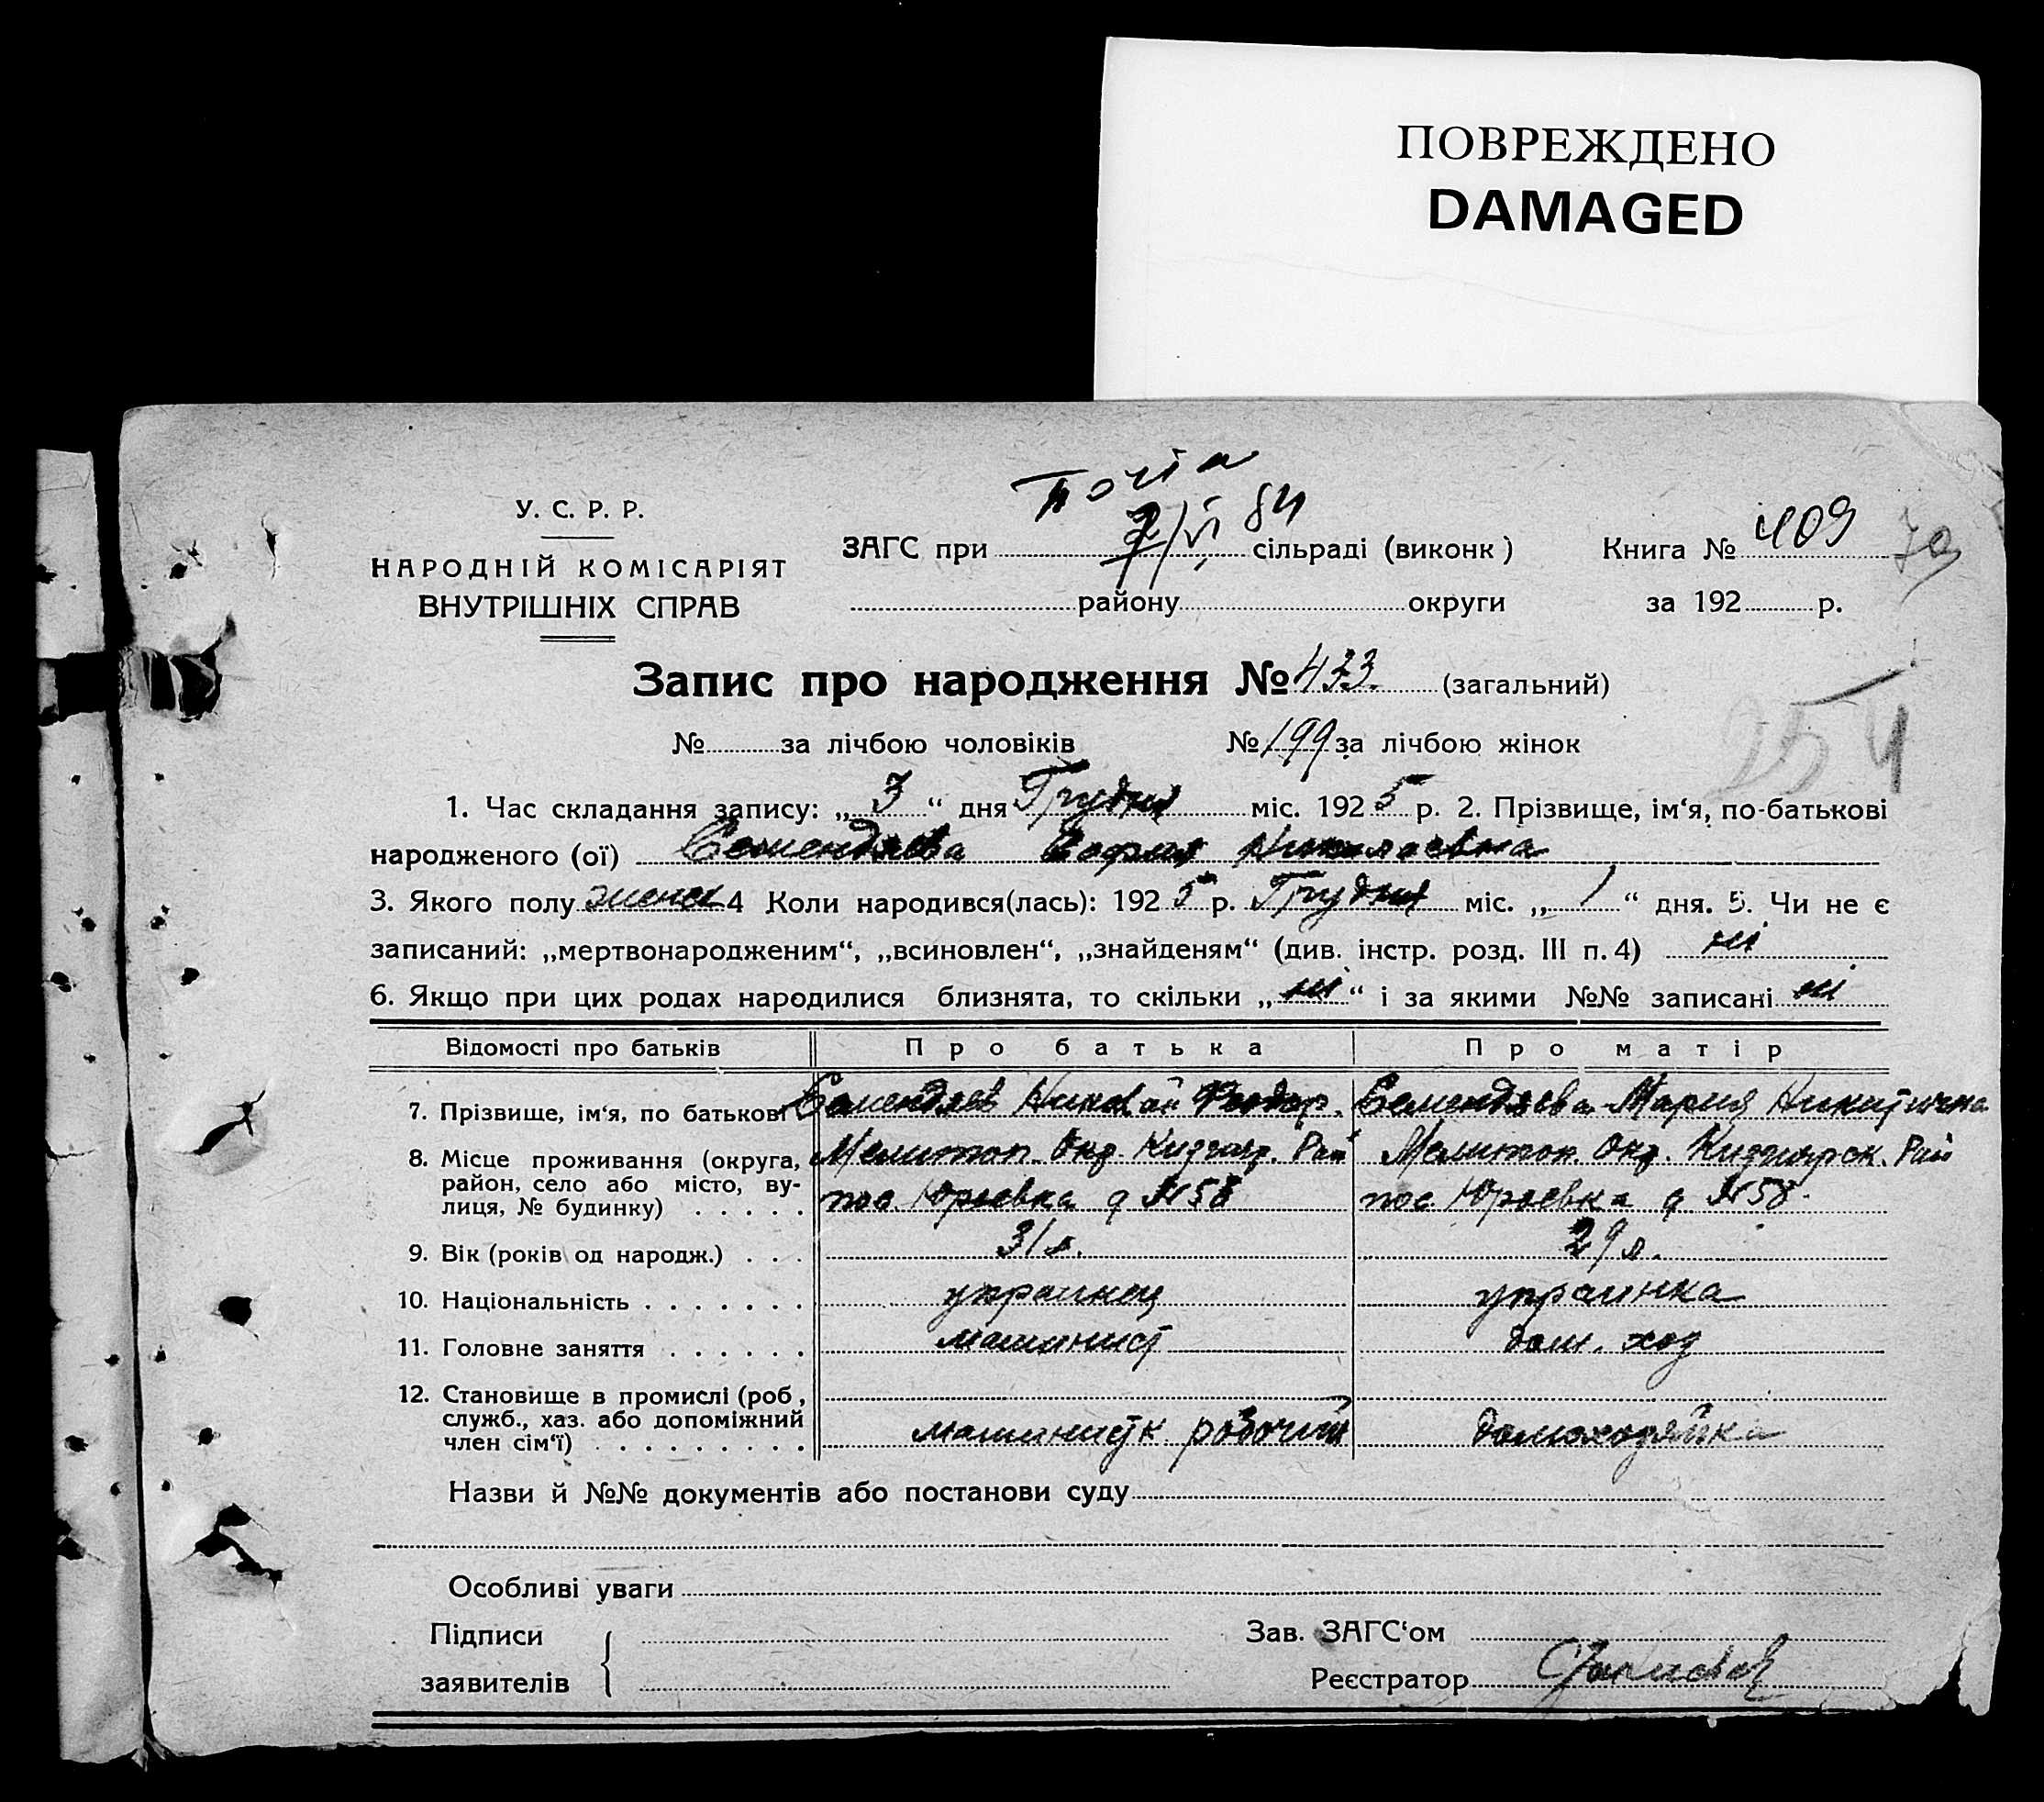 ПОВРЕЖДЕНО
DAMAGED
У. С. Р. Р.
НАРОДНІЙ КОМІСАРІЯТ
ВНУТРІШНІХ СПРАВ
84
ЗАГС при сільраді (виконк)
Книга № 409
району округи
за 192 р.
Запис про народження № 433. (загальний)
№ за лічбою чоловіків № 199 за лічбою жінок
254
1. Час складання запису: „3“ дня Грудня міс. 1925 р. 2. Прізвище, ім‘я, по-батькові
народженого (ої) Семендяева София Николаевна
3. Якого полу 4 Коли народився(лась): 1925 р. Грудня міс. „1“ дня. 5. Чи не є
записаний: „мертвонародженим“, „всиновлен“, „знайденям“ (див. інстр. розд. III п. 4) ні
6. Якщо при цих родах народилися близнята, то скільки „ні“ і за якими №№ записані ні
Відомості про батьків Про батька Про матір
7. Прізвище, ім‘я, по батькові Семендяев Николай Федор. Семендяева Мария Никитична
8. Місце проживання (округа, Мелитоп. Окр. Рай Мелитоп. Окр. Рай
район, село або місто, ву-
лиця, № будинку) пос Юрьевка д №58 пос Юрьевка д №58
9. Вік (років од народж.) 31 л. 29 л.
10. Національність украинец украинка
11. Головне заняття машинист дом. хоз
12. Становище в промислі (роб,
служб., хаз. або допоміжний
член сім‘ї) робочий домохозяйка
Назви й №№ документів або постанови суду
Особливі уваги
Підписи
заявителів
Зав. ЗАГС‘ом
Реєстратор